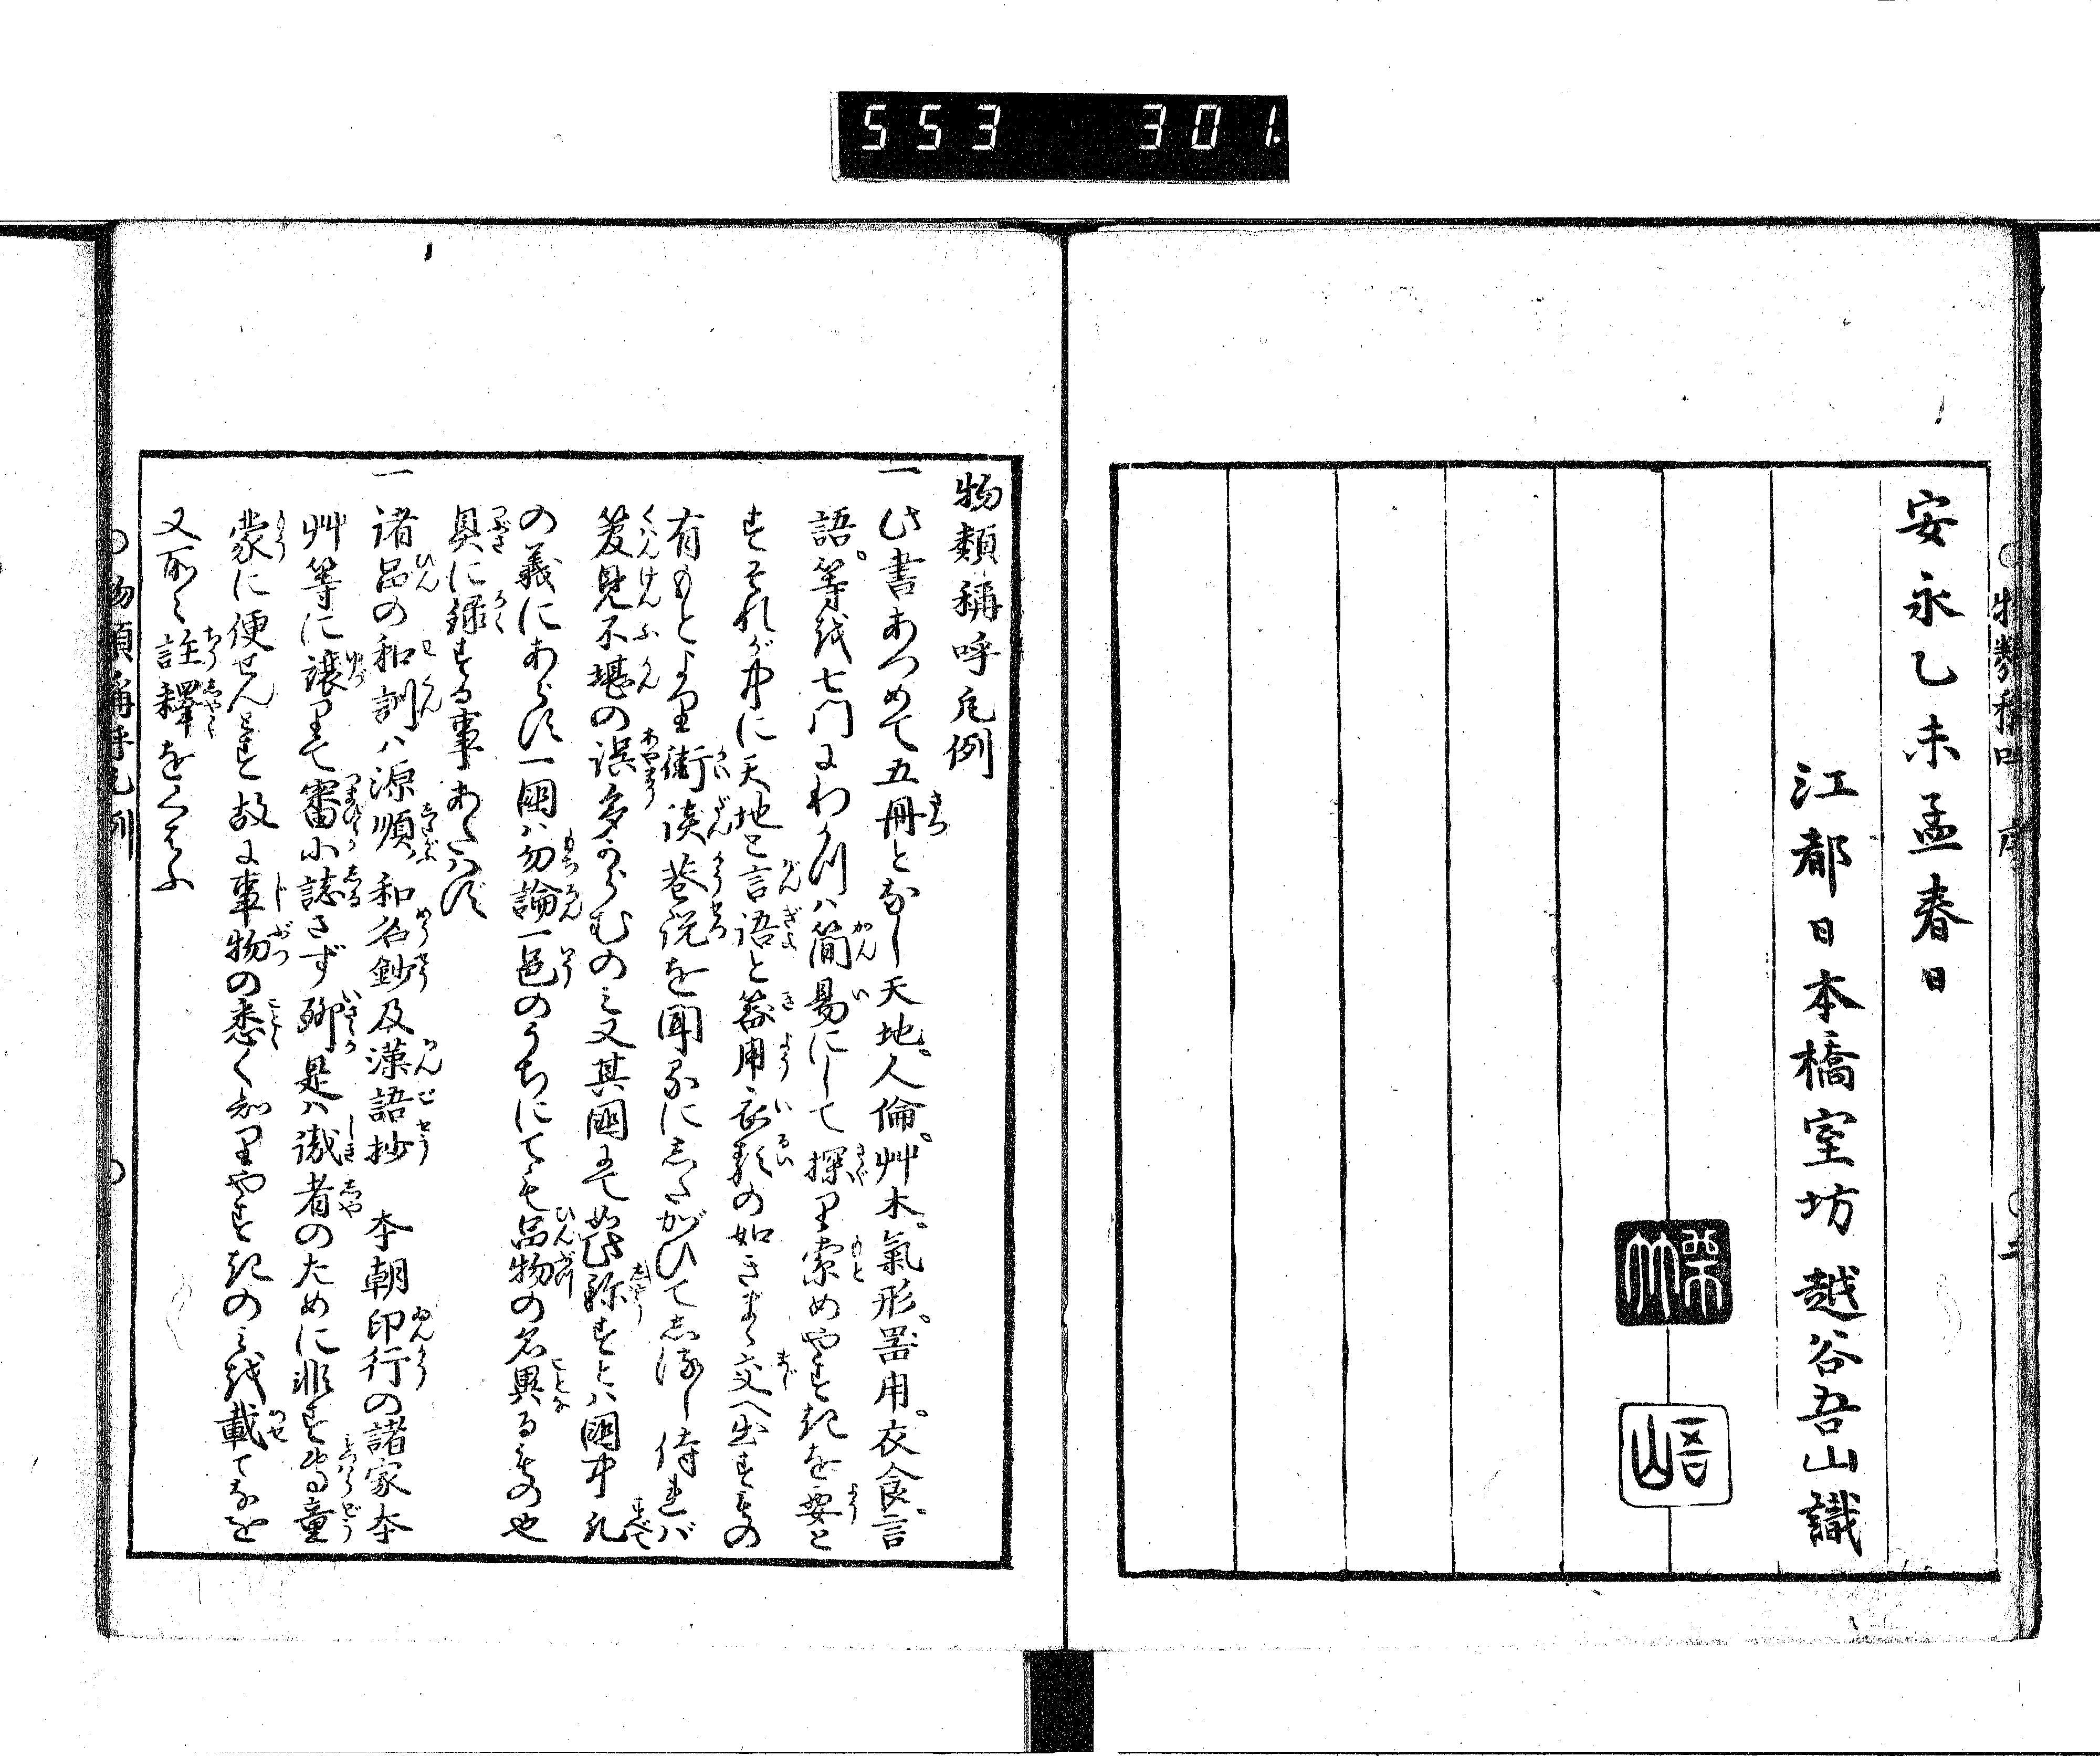 553 301
安永乙未孟春日
江都日本橋室坊 越谷吾山識
物類稱呼凡例
一此書あつめて五冊となし天地。人倫。艸木。氣形。器用。衣食。言
語。等越七門にわかつハ簡易にして探り索めやすきを要と
すそれが中に天地と言語と器用衣類の如きまゝ交へ出すもの
有もとより街談巷説を聞るにしたがひてしるし侍れバ
管見不堪の誤多からむのミ又其國にて如此称すとハ國中凡
の義にあらす一國ハ勿論一邑のうちにても品物の名異るもの也
具に録する事あたハず
一諸品の和訓ハ源順和名鈔及漢語抄 本朝印行の諸家本
艸等に讓りて審に誌さず聊是ハ識者のために非す只童
蒙に便せんとす故に事物の悉く知りやすきのミ越載てなを
又所々註釋をくはふ